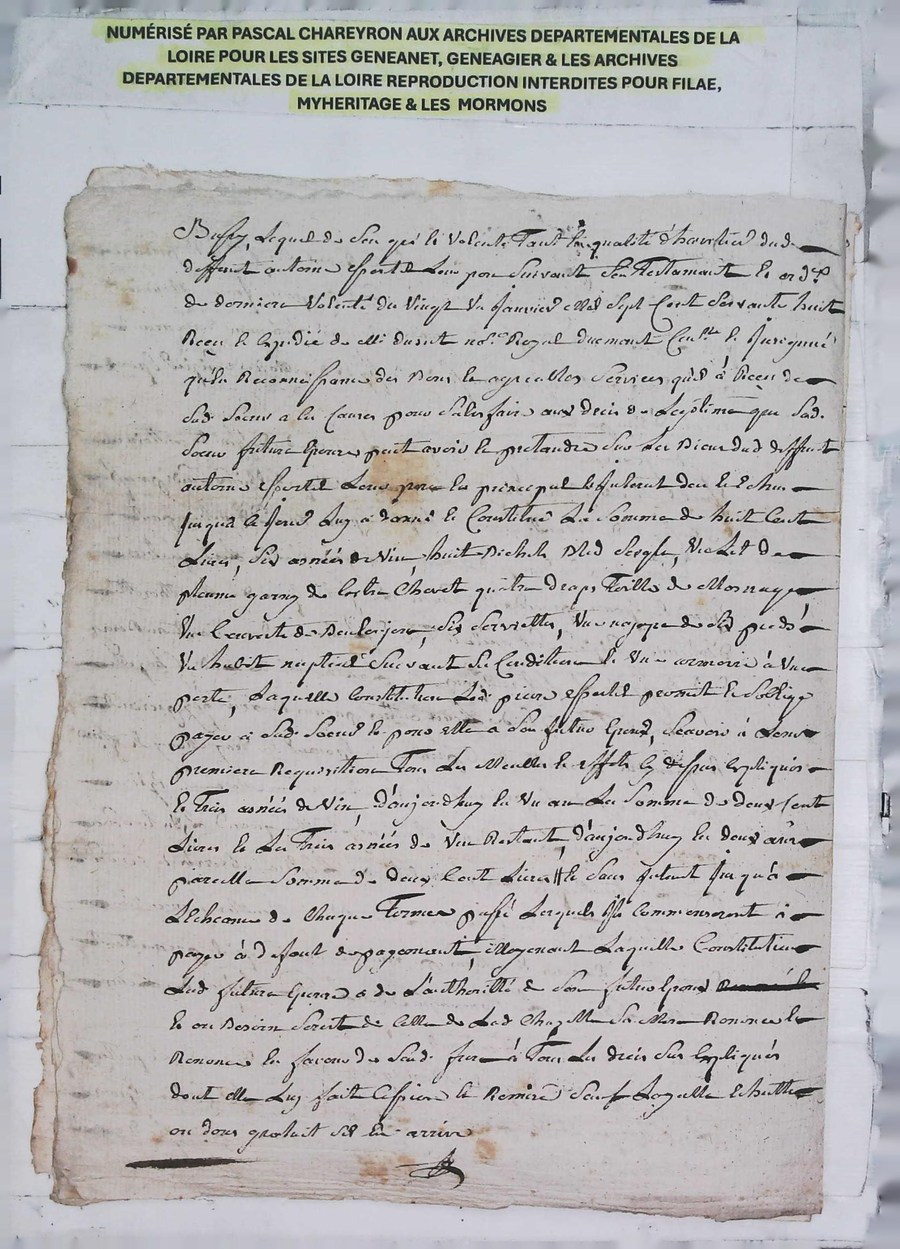 NUMÉRISÉ PAR PASCAL CHAREYRON AUX ARCHIVES DEPARTEMENTALES DE LA
LOIRE POUR LES SITES GENEANET, GENEAGIER & LES ARCHIVES
DEPARTEMENTALES DE LA LOIRE REPRODUCTION INTERDITES POUR FILAE,
MYHERITAGE & LES MORMONS
Lequel de Son gré et Volonté, Tant En qualité d'heritier dud
deffunt antoine Leur pere Suivant Son Testamant et ord.ce
de derniere Volonté du Vingt Un Janvier Mil Sept Cent Soixante huit
Reçu et Expedié de Me durit no.re Royal et Jnsignué
qu'En Reconnoissance des Bons et agreables Services qu'il à Reçu de
Sad. Soeur a les Causes pour Satisfaire aux droits de Legitime que Sad.
Soeur future Epouse peut avoir et pretandre Sur Les Biens dud deffunt
antoine Leur pere En principal et Jnterest
Jusqua Ce Jour Luy à donné et Constitué La Somme de huit Cent
Livres, Six années de Vin, huit Bichets Bled Seigle, Un Lit de
plume garny de Chevet quatre draps Toille de Menage,
Une Couverte de Six Serviettes, Une nappe de Six pieds,
Un habit nuptial Suivant Sa Condition Et Une armoire à Une
porte, Laquelle Constitution Led. promet et S'oblige
payer à Sad. Soeur Et pour Elle à Son futur Epoux, Sçavoir à Leur
premiere Requisition Tous Les Meubles Et Effets Cy dessus Expliqués
Et Trois années de Vin, d'aujourdhuy En Un an La Somme de deux Cent
Livres Et Les Trois années de Vin Restant, d'aujourdhuy En deux ans
pareille Somme de deux Cent Livres Et Sans Jnterest Jusqu'à
L'Echeance de Chaque Terme passé Lesquels Jls Commenseront à
payer à defaut de payement, Moyenant Laquelle Constitution
Lad. future Epouse a de L'authorité de Son futur Epoux
Et ou Besoin Seroit de Celle de Lad. Sa Mere Renoncé Et
Renonce En faveur de Sond. frere à Tous Les droits Sus Expliqués
dont Elle Luy fait Cession Et Remise Sauf Loyalle Echutte
ou dons gratuit Sil En arrive